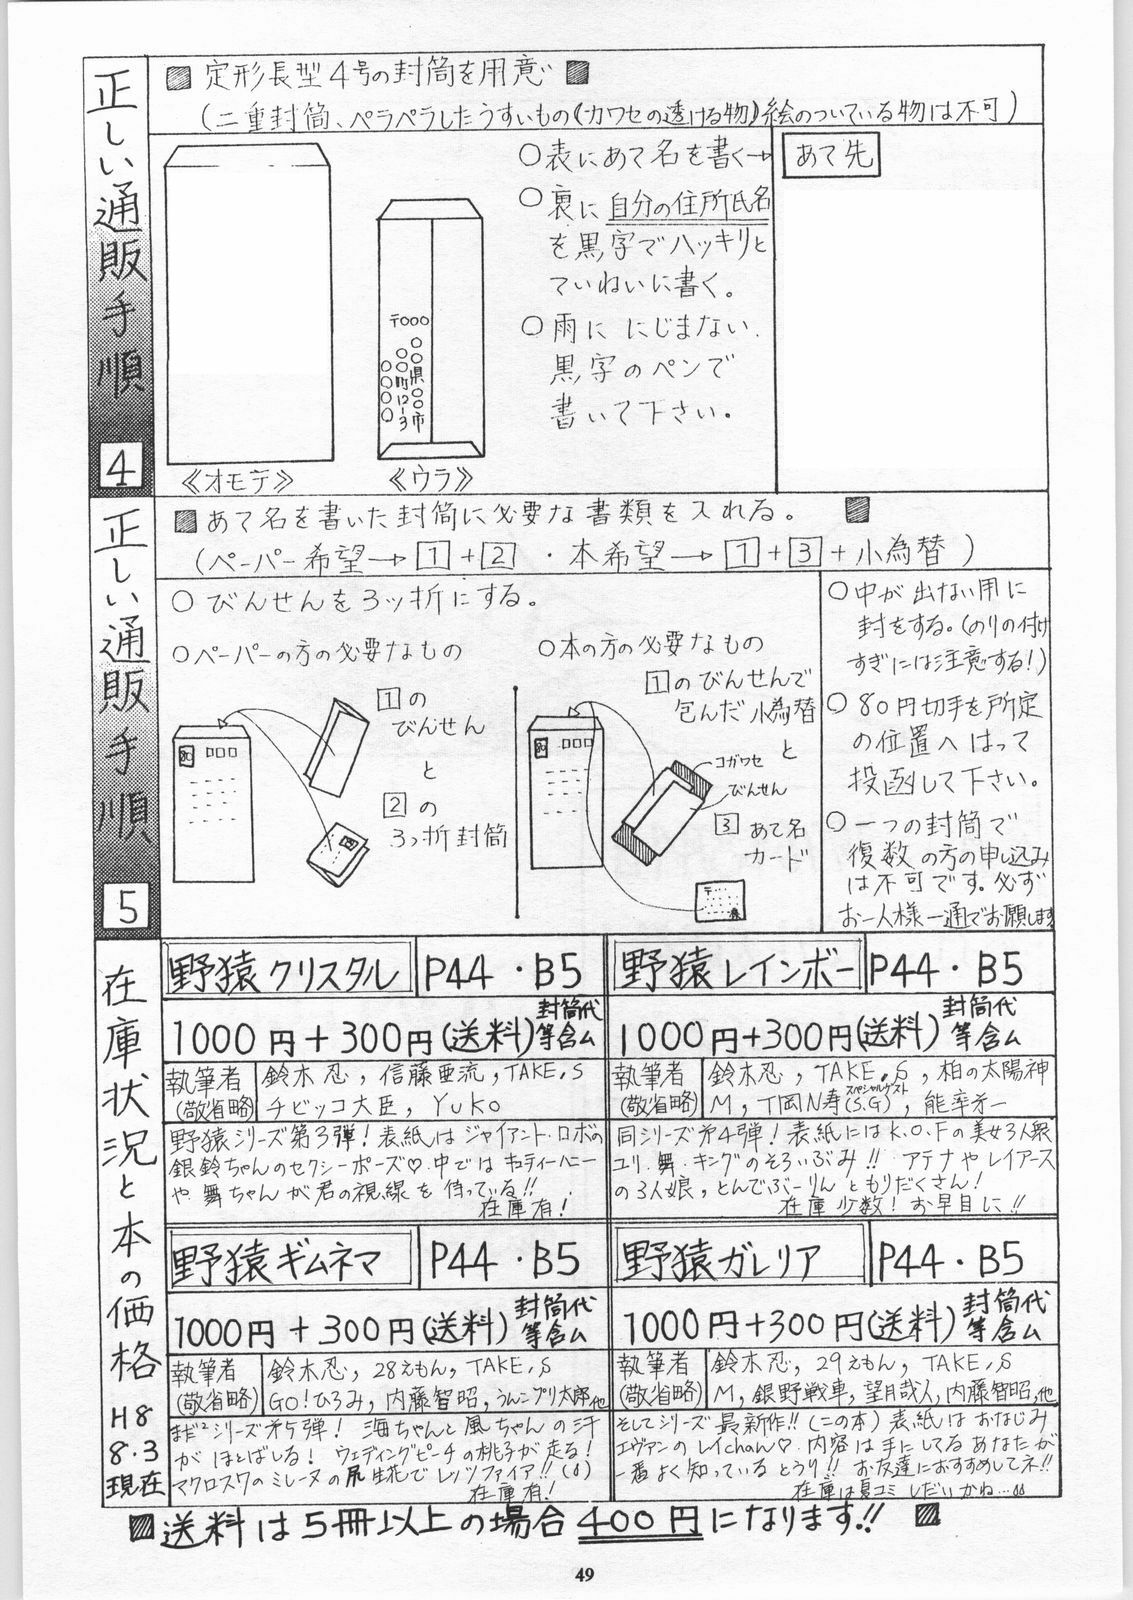 正しい通販手順 4
■ 定形長型4号の封筒を用意 ■
(二重封筒、ペラペラしたうすいもの《カワセの透ける物》絵のついている物は不可)
○表にあて名を書く→
あて先
○裏に自分の住所氏名
を黒字でハッキリと
ていねいに書く。
○雨ににじまない
黒字のペンで
書いて下さい。
〒○○○
○○県○○市
○○町12-3
○○○○
《オモテ》
《ウラ》
正しい通販手順 5
■あて名を書いた封筒に必要な書類を入れる。 ■
(ペーパー希望→1+2・本希望→1+3+小為替)
○びんせんを3ッ折にする。
○ペーパーの方の必要なもの
1の
びんせん
と
2の
3っ折封筒
80
○本の方の必要なもの
1のびんせんで
包んだ小為替
と
コガワセ
びんせん
3 あて名
カード
80
〒
○中が出ない用に
封をする。(のりの付け
すぎには注意する!)
○80円切手を所定
の位置へはって
投函して下さい。
○一つの封筒で
復数の方の申し込み
は不可です。必ず
お一人様一通でお願します
在庫状況と本の価格
H8
8.3
現在
野猿クリスタル P44・B5
1000円+300円(送料)封筒代
等含ム
執筆者
(敬省略)
鈴木忍,信藤亜流,TAKE.S
チビッコ大臣,YUKO
野猿シリーズ第3弾!表紙はジャイアント・ロボの
銀鈴ちゃんのセクシーポーズ♡.中ではキューティーハニー
や舞ちゃんが君の視線を待っている!!
在庫有!
野猿レインボー P44・B5
1000円+300円(送料)封筒代
等含ム
執筆者
(敬省略)
鈴木忍,TAKE.S,柏の太陽神
M,T岡N寿(S.G),能率才一
スペシャルゲスト
同シリーズ才4弾!表紙にはK.O.Fの美女3人衆
ユリ.舞.キングのそろいぶみ!!アテナやレイアース
の3人娘,とんでぶーりんともりだくさん!
在庫少数!お早目に!!
野猿ギムネマ P44・B5
1000円+300円(送料)封筒代
等含ム
執筆者
(敬省略)
鈴木忍,28えもん,TAKE.S
GO!ひろみ,内藤智昭,うんこプリ太郎,他
まだ²シリーズ才5弾!海ちゃんと風ちゃんの汗
がほとばしる!ウェディングピーチの桃子が走る!
マクロス7のミレーヌの尻生花でレッツファイア!!(δ)
在庫有!
野猿ガレリア P44・B5
1000円+300円(送料)封筒代
等含ム
執筆者
(敬省略)
鈴木忍,29えもん,TAKE.S
M,銀野戦車,望月哉人,内藤智昭,他
そしてシリーズ最新作!!(この本)表紙はおなじみ
エヴァンのレイchan♡.内容は手にしてるあなたが
一番よく知っているとうり!!お友達におすすめしてネ!!
在庫は夏コミしだいかね…
■送料は5冊以上の場合400円になります!! ■
49